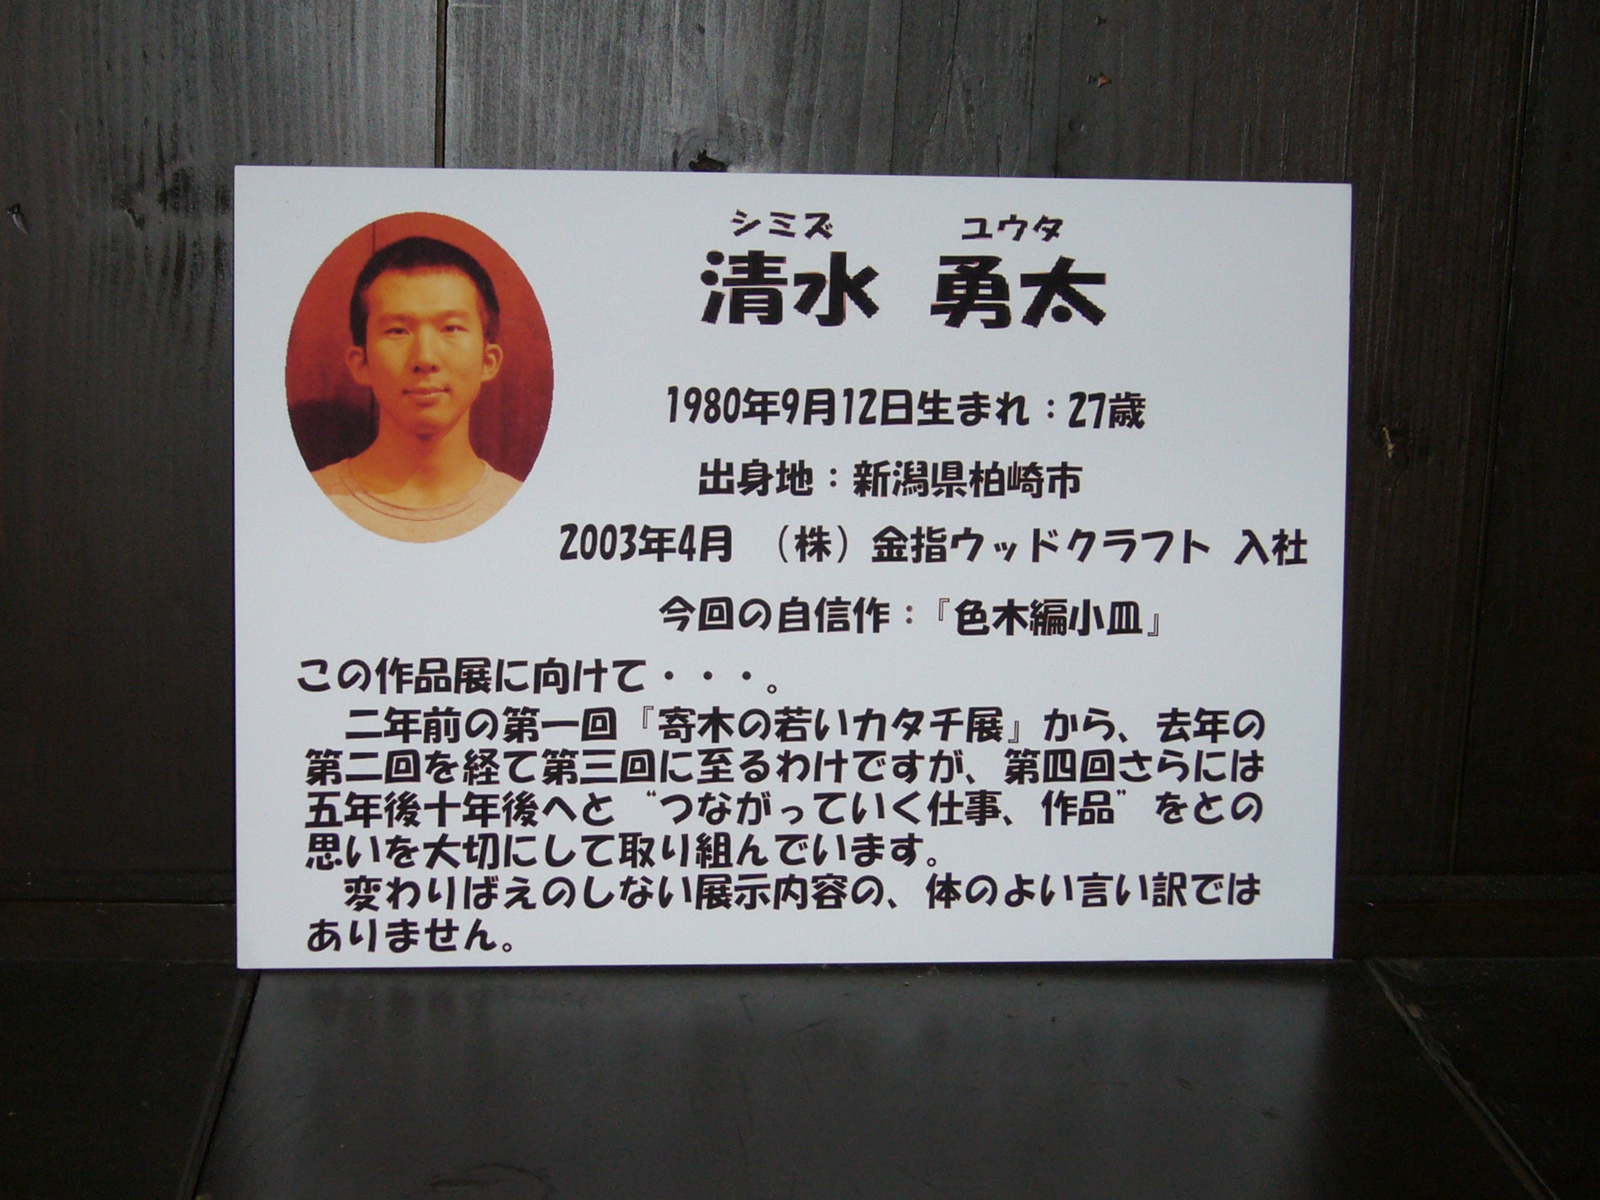 シミズ ユウタ
清水 勇太
1980年9月12日生まれ：27歳
出身地：新潟県柏崎市
2003年4月 （株）金指ウッドクラフト 入社
今回の自信作：『色木編小皿』
この作品展に向けて・・・。
二年前の第一回『寄木の若いカタチ展』から、去年の
第二回を経て第三回に至るわけですが、第四回さらには
五年後十年後へと“つながっていく仕事、作品”をとの
思いを大切にして取り組んでいます。
変わりばえのしない展示内容の、体のよい言い訳では
ありません。